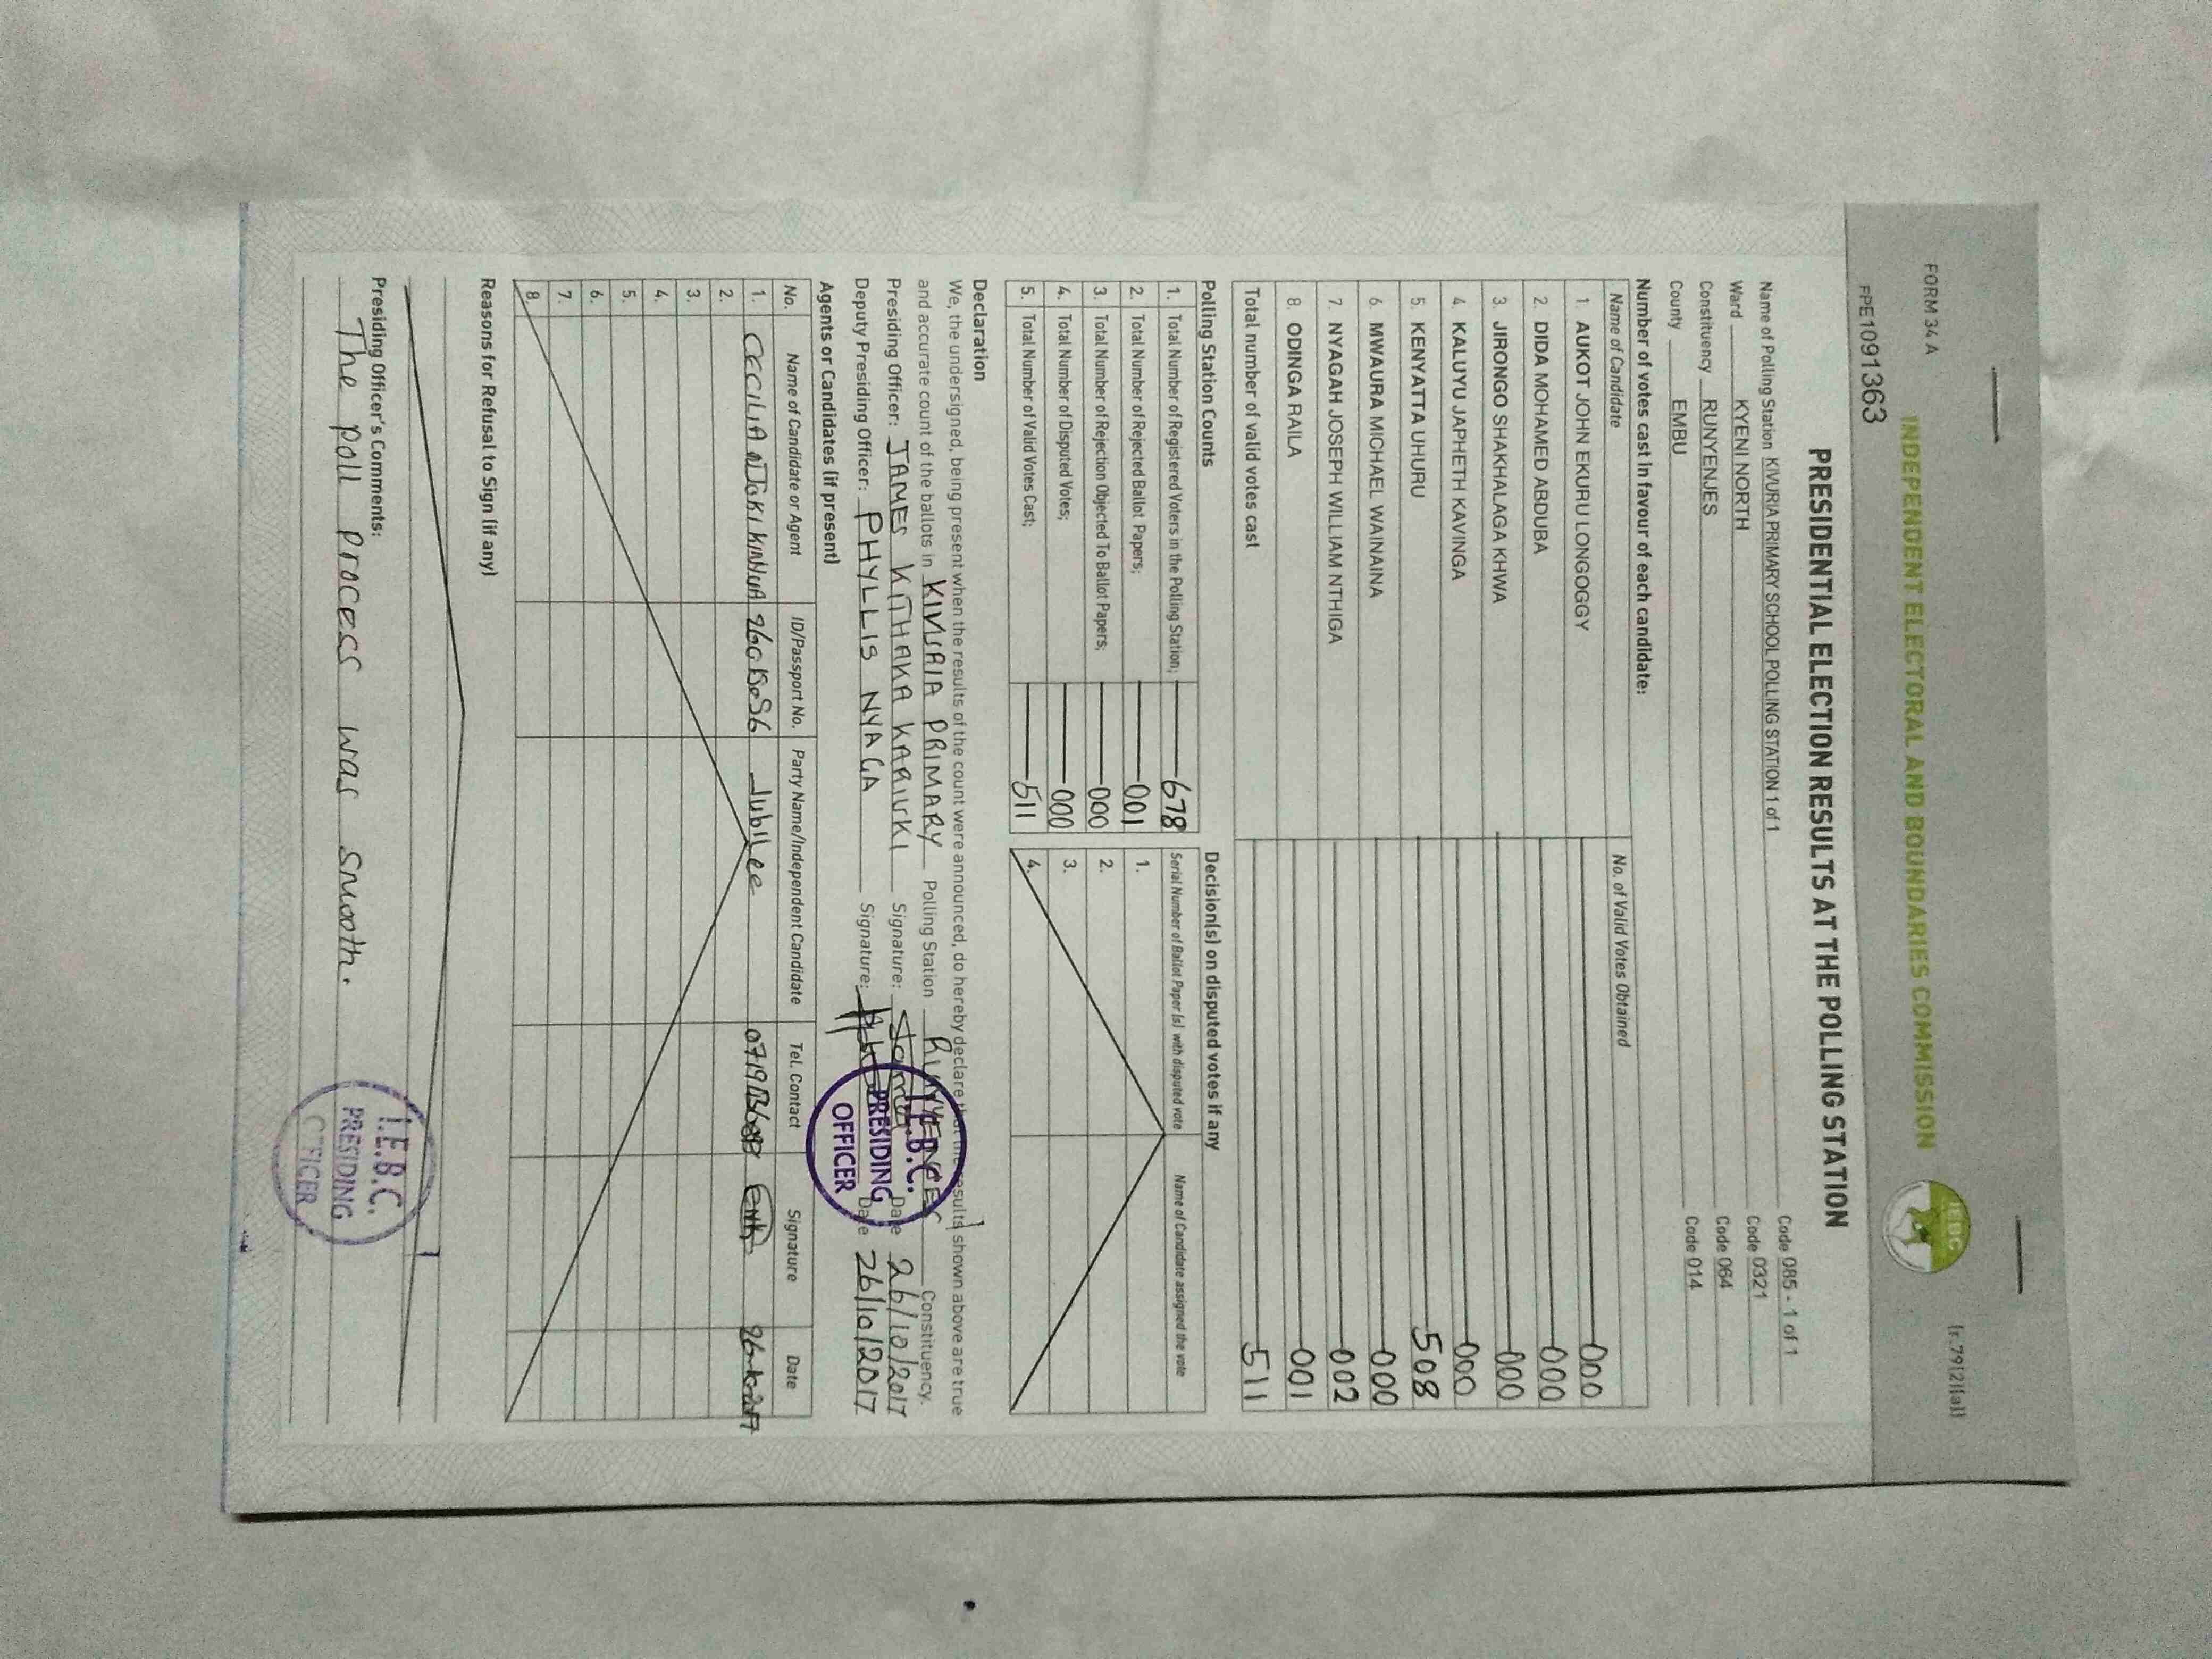 FORM 34 A
(r.79(2)(a))
INDEPENDENT ELECTORAL AND BOUNDARIES COMMISSION
IEBC
FPE1091363
PRESIDENTIAL ELECTION RESULTS AT THE POLLING STATION
Name of Polling Station KIVURIA PRIMARY SCHOOL POLLING STATION 1 of 1 Code 085 - 1 of 1
Ward KYENI NORTH Code 0321
Constituency RUNYENJES Code 064
County EMBU Code 014
Number of votes cast in favour of each candidate:
Name of Candidate No. of Valid Votes Obtained
1. AUKOT JOHN EKURU LONGOGGY 000
2. DIDA MOHAMED ABDUBA 000
3. JIRONGO SHAKHALAGA KHWA 000
4. KALUYU JAPHETH KAVINGA 000
5. KENYATTA UHURU 508
6. MWAURA MICHAEL WAINAINA 000
7. NYAGAH JOSEPH WILLIAM NTHIGA 002
8. ODINGA RAILA 001
Total number of valid votes cast 511
Polling Station Counts
1. Total Number of Registered Voters in the Polling Station; 678
2. Total Number of Rejected Ballot Papers; 001
3. Total Number of Rejection Objected To Ballot Papers; 000
4. Total Number of Disputed Votes; 000
5. Total Number of Valid Votes Cast; 511
Decision(s) on disputed votes if any
Serial Number of Ballot Paper (s) with disputed vote Name of Candidate assigned the vote
1.
2.
3.
4.
Declaration
We, the undersigned, being present when the results of the count were announced, do hereby declare that the results shown above are true
and accurate count of the ballots in KIVURIA PRIMARY Polling Station RUNYENJES Constituency.
Presiding Officer: JAMES KITHAKA KARIUKI Signature: Date 26/10/2017
Deputy Presiding Officer: PHYLLIS NYAGA Signature: Date 26/10/2017
I.E.B.C.
PRESIDING
OFFICER
Agents or Candidates (if present)
No. Name of Candidate or Agent ID/Passport No. Party Name/Independent Candidate Tel. Contact Signature Date
1. CECILIA NJOKI KINYUA Jubilee
2.
3.
4.
5.
6.
7.
8.
Reasons for Refusal to Sign (if any)
Presiding Officer's Comments:
The poll process was smooth.
I.E.B.C.
PRESIDING
OFFICER